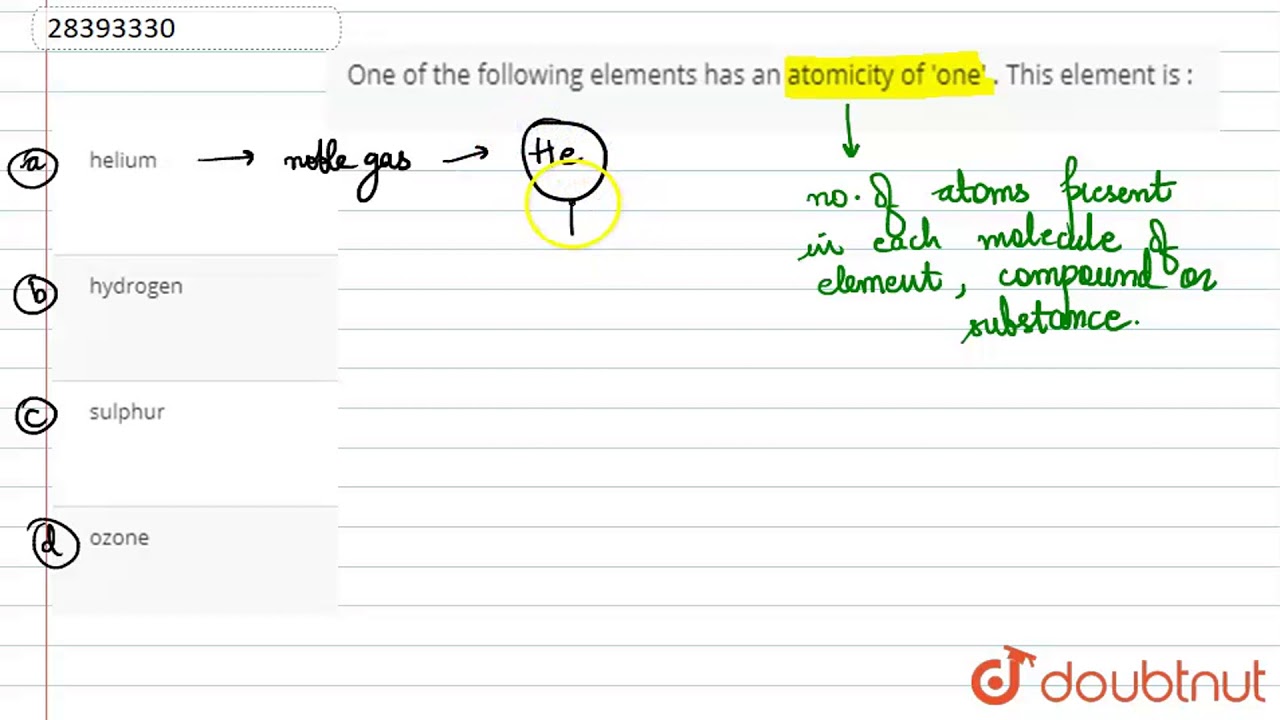 28393330
One of the following elements has an atomicity of 'one' . This element is :
a helium → noble gas → He
no. of atoms present
in each molecule of
element, compound or
substance.
b hydrogen
c sulphur
d ozone
doubtnut